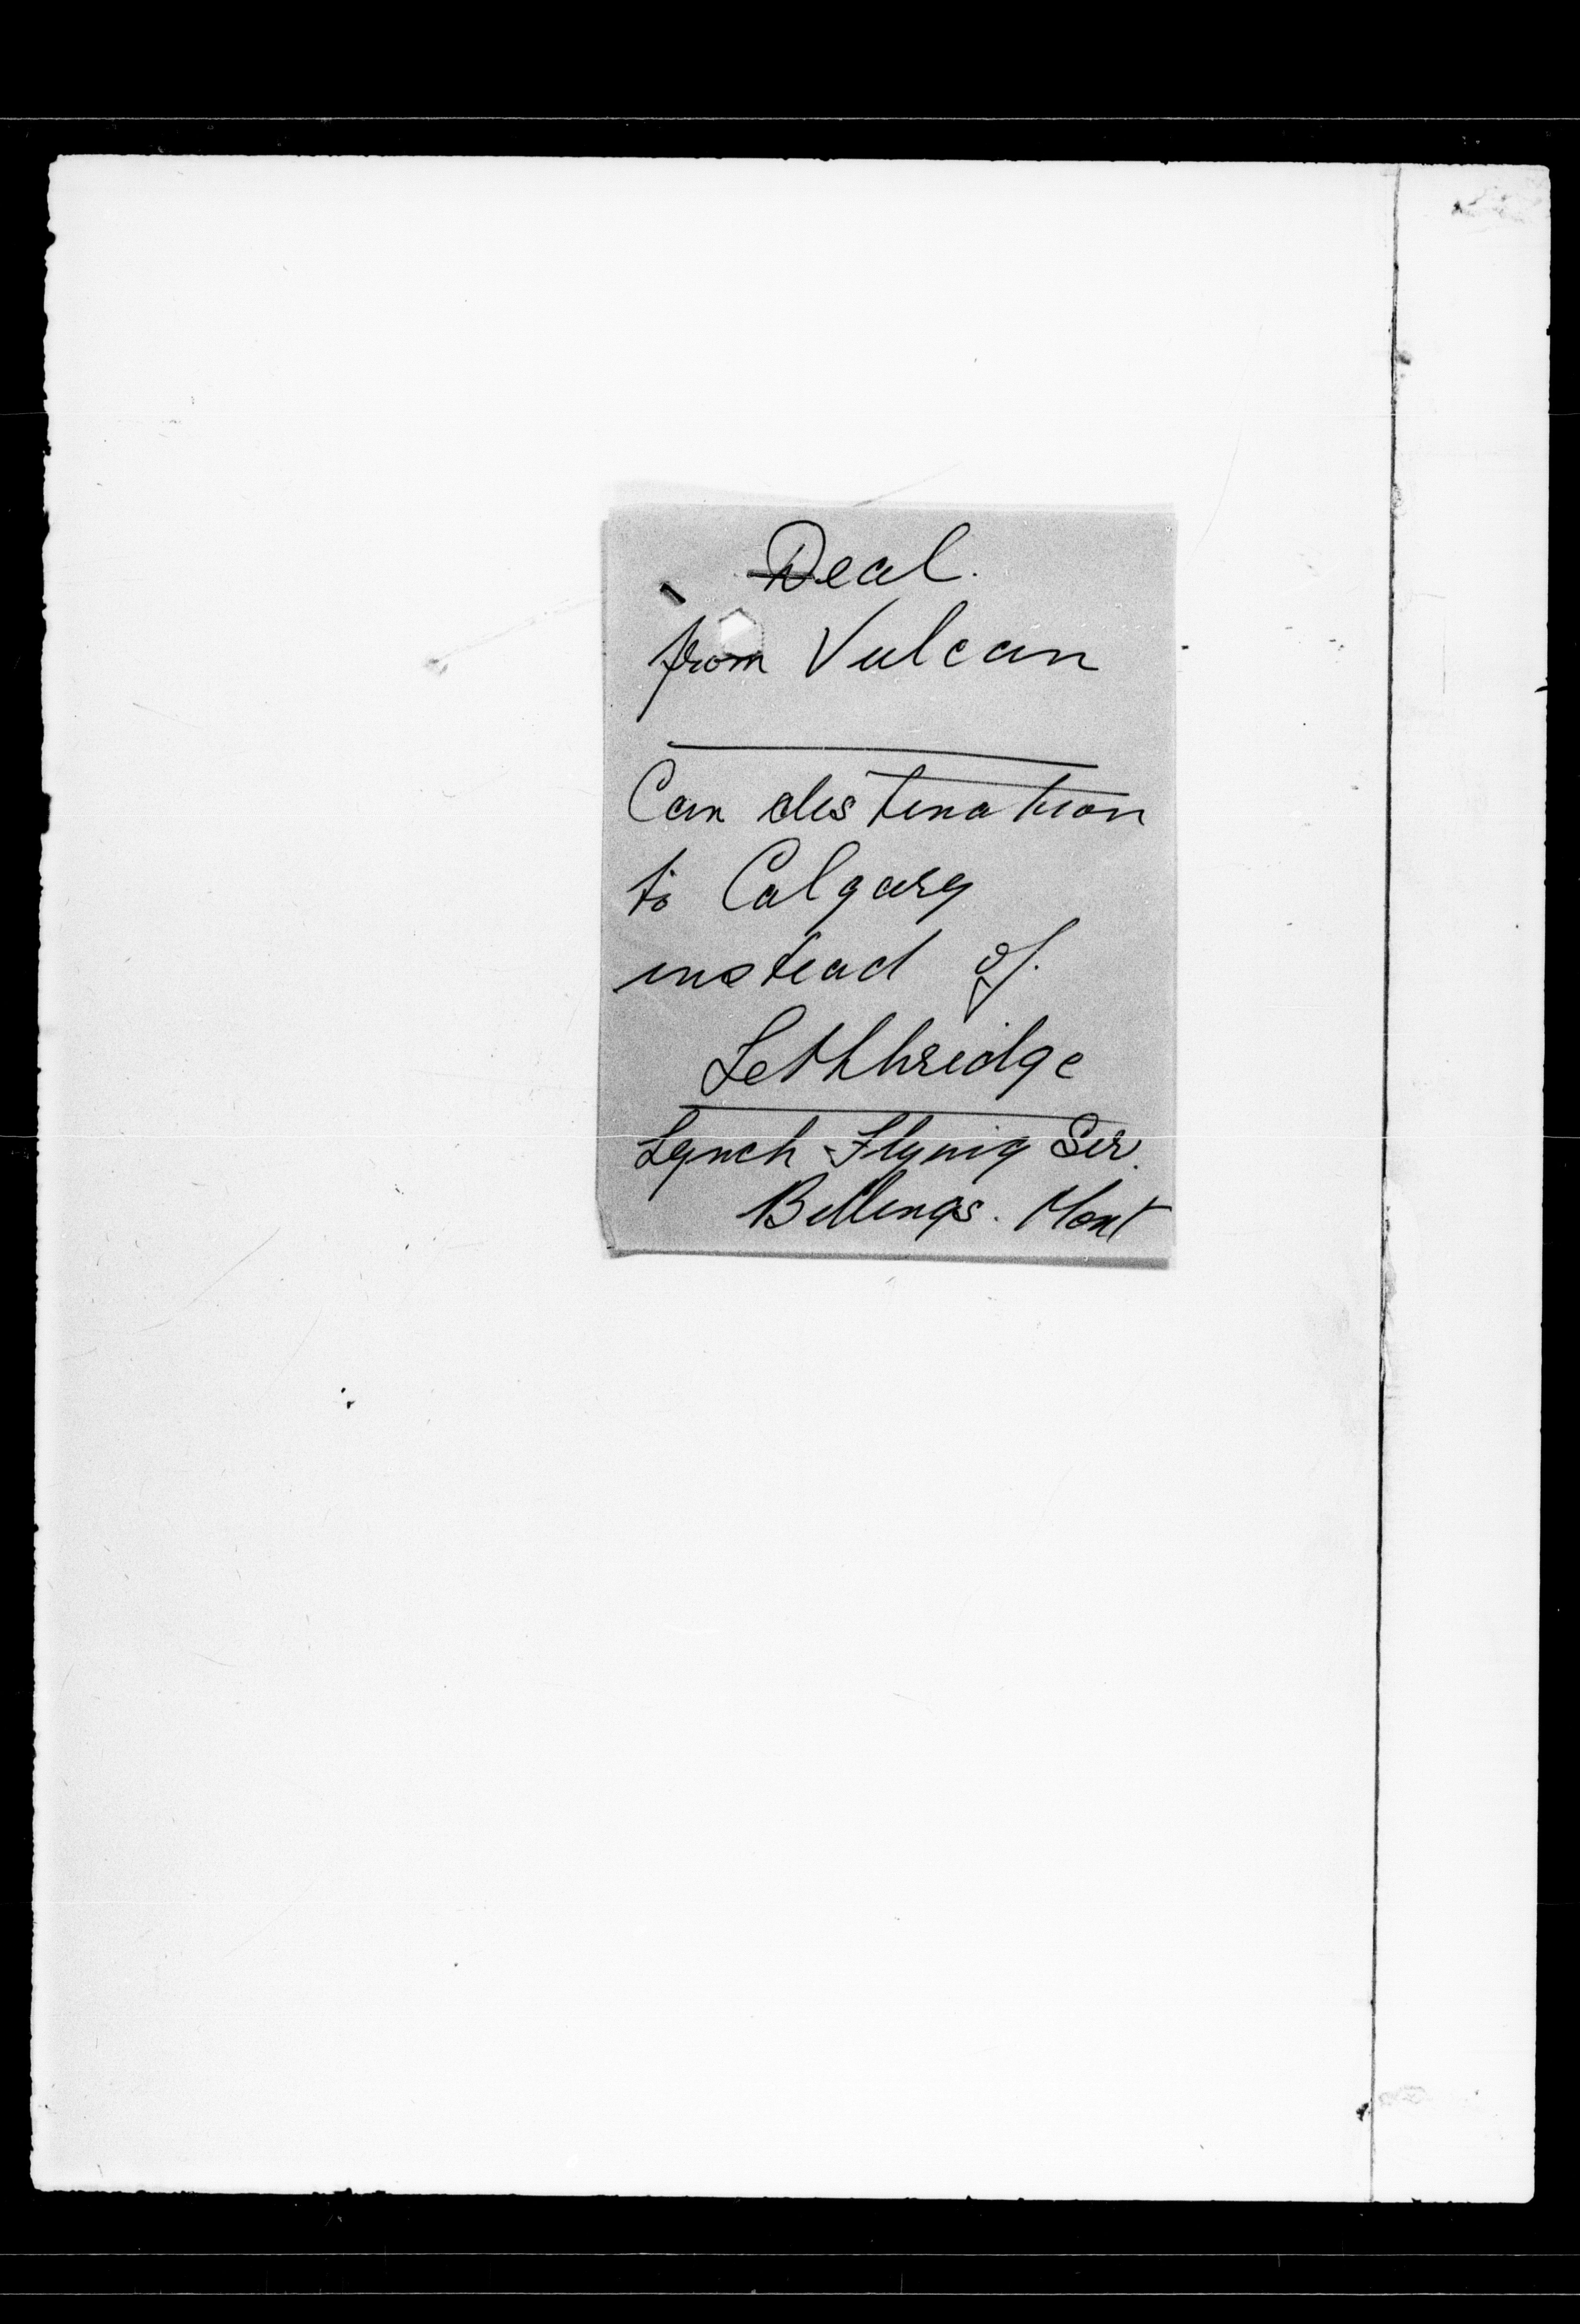 Deal.
from Vulcan
Can destination
to Calgary
instead of.
Lethbridge
Lynch Flying Ser.
Billings. Mont